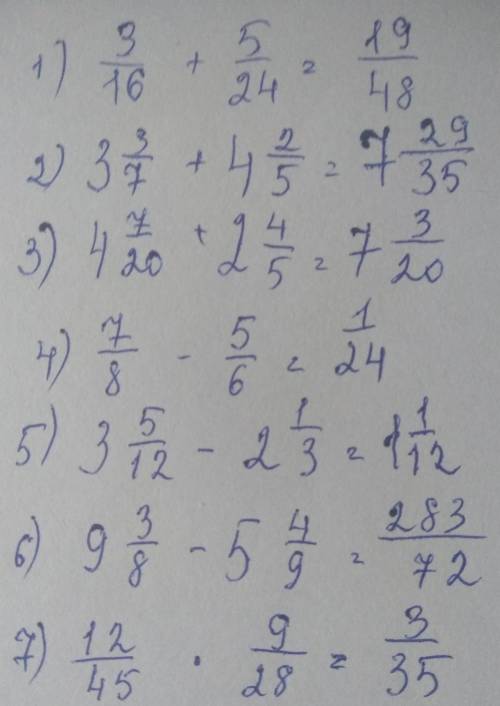 1) 3/16 + 5/24 = 19/48
2) 3 3/7 + 4 2/5 = 7 29/35
3) 4 7/20 + 2 4/5 = 7 3/20
4) 7/8 - 5/6 = 1/24
5) 3 5/12 - 2 1/3 = 1 1/12
6) 9 3/8 - 5 4/9 = 283/72
7) 12/45 · 9/28 = 3/35